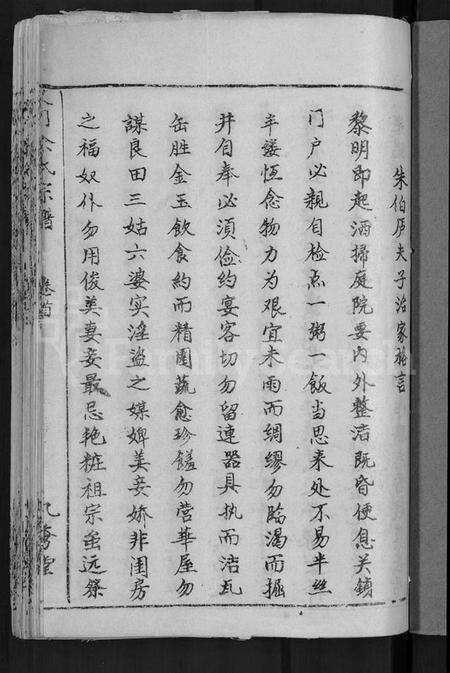 朱伯庐夫子治家格言
黎明即起洒掃庭院要内外整洁既昏便息关鎖
门户必親自检点一粥一飯当思来处不易半丝
半缕恆念物力为艰宜未雨而綢缪勿临渴而掘
井自奉必須俭约宴客切勿留連器具执而洁瓦
缶胜金玉飲食約而精園蔬愈珍饈勿营華屋勿
謀良田三姑六婆实淫盜之媒婢美妾娇非闺房
之福奴仆勿用俊美妻妾最忌艳粧祖宗虽远祭
氏宗譜
卷首
堂
FamilySearch